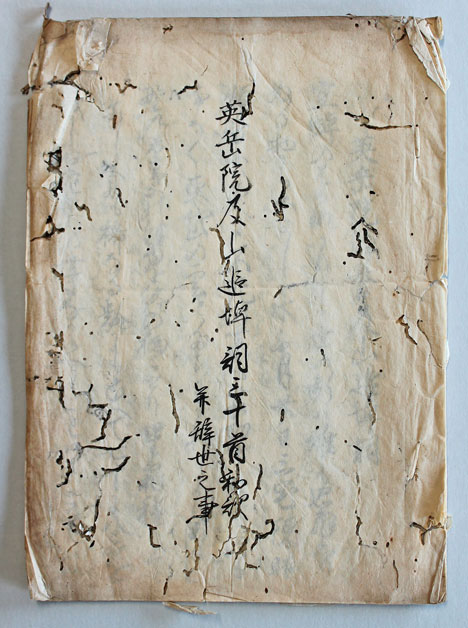 英岳院反山追悼詞三十首和歌
并辞世之事